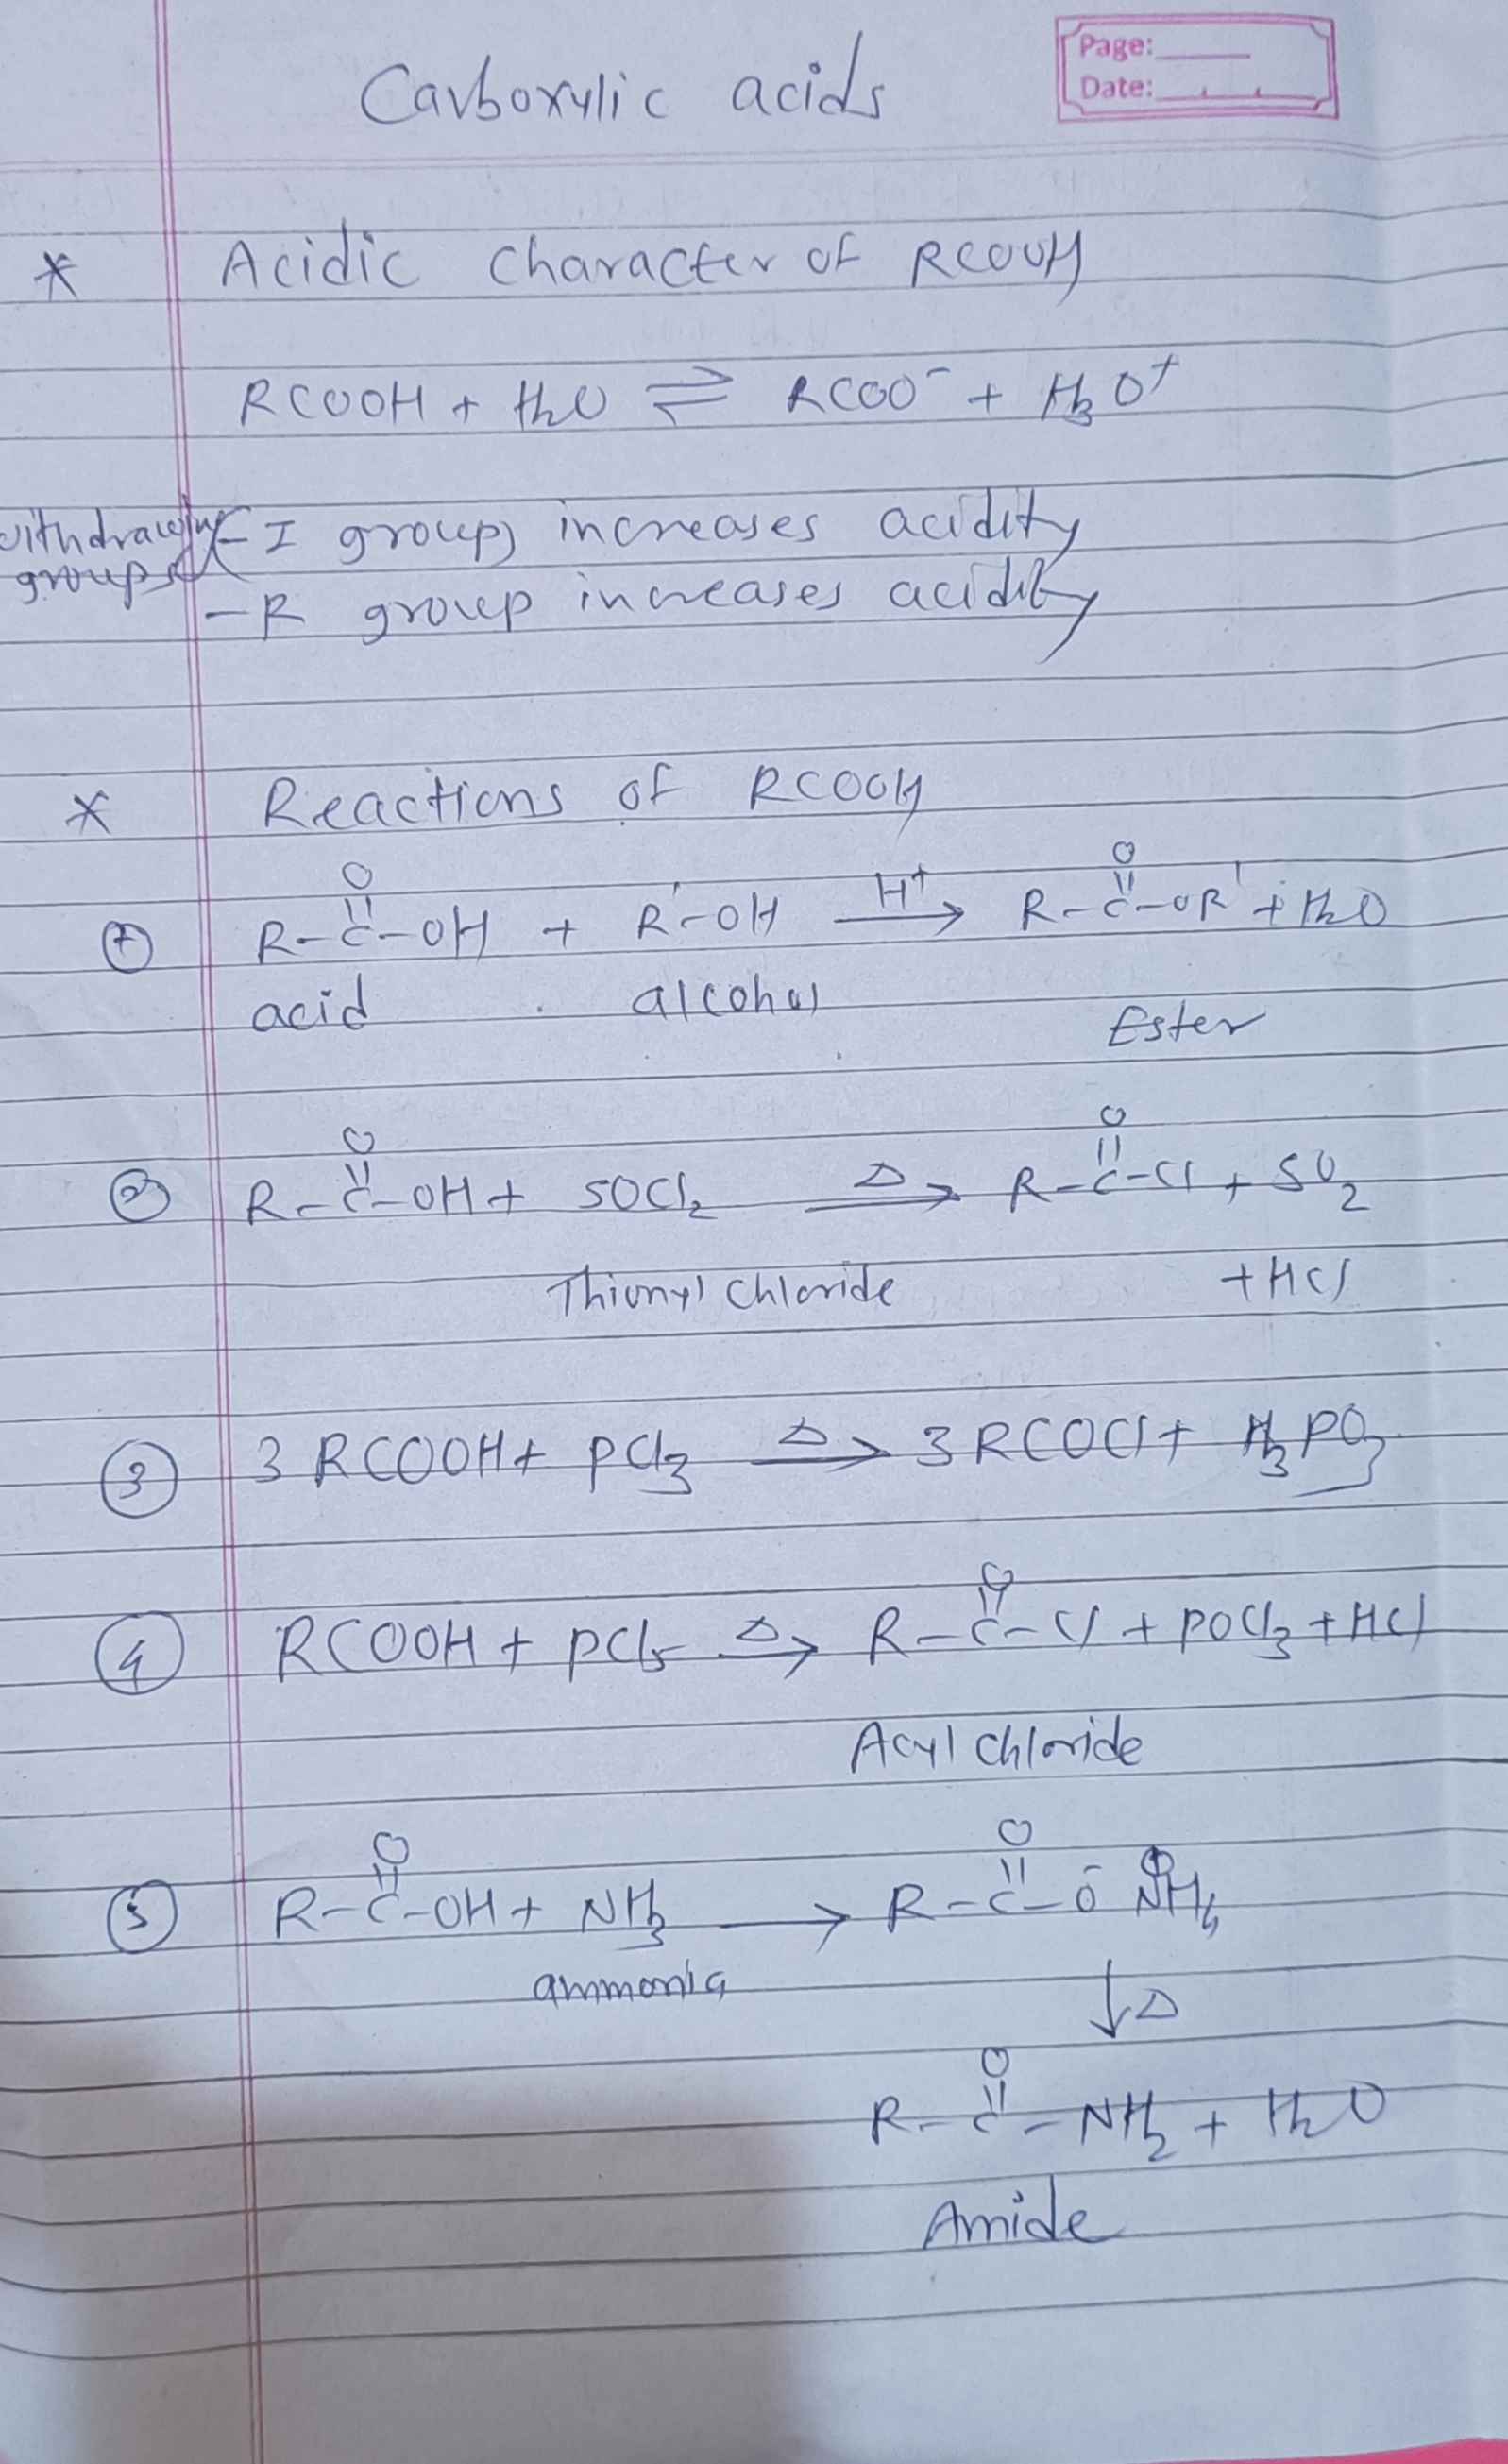 Page:
Date:
Carboxylic acids
* Acidic character of RCOOH
RCOOH + H₂O ⇌ RCOO⁻ + H₃O⁺
withdrawing groups
- I groups increases acidity
- R group increases acidity
* Reactions of RCOOH
① R-C(=O)-OH + R'-OH —H⁺→ R-C(=O)-OR' + H₂O
acid alcohol Ester
② R-C(=O)-OH + SOCl₂ —Δ→ R-C(=O)-Cl + SO₂
Thionyl chloride + HCl
③ 3 RCOOH + PCl₃ —Δ→ 3 RCOCl + H₃PO₃
④ RCOOH + PCl₅ —Δ→ R-C(=O)-Cl + POCl₃ + HCl
Acyl chloride
⑤ R-C(=O)-OH + NH₃ → R-C(=O)-O⁻ N⁺H₄
ammonia ↓Δ
R-C(=O)-NH₂ + H₂O
Amide